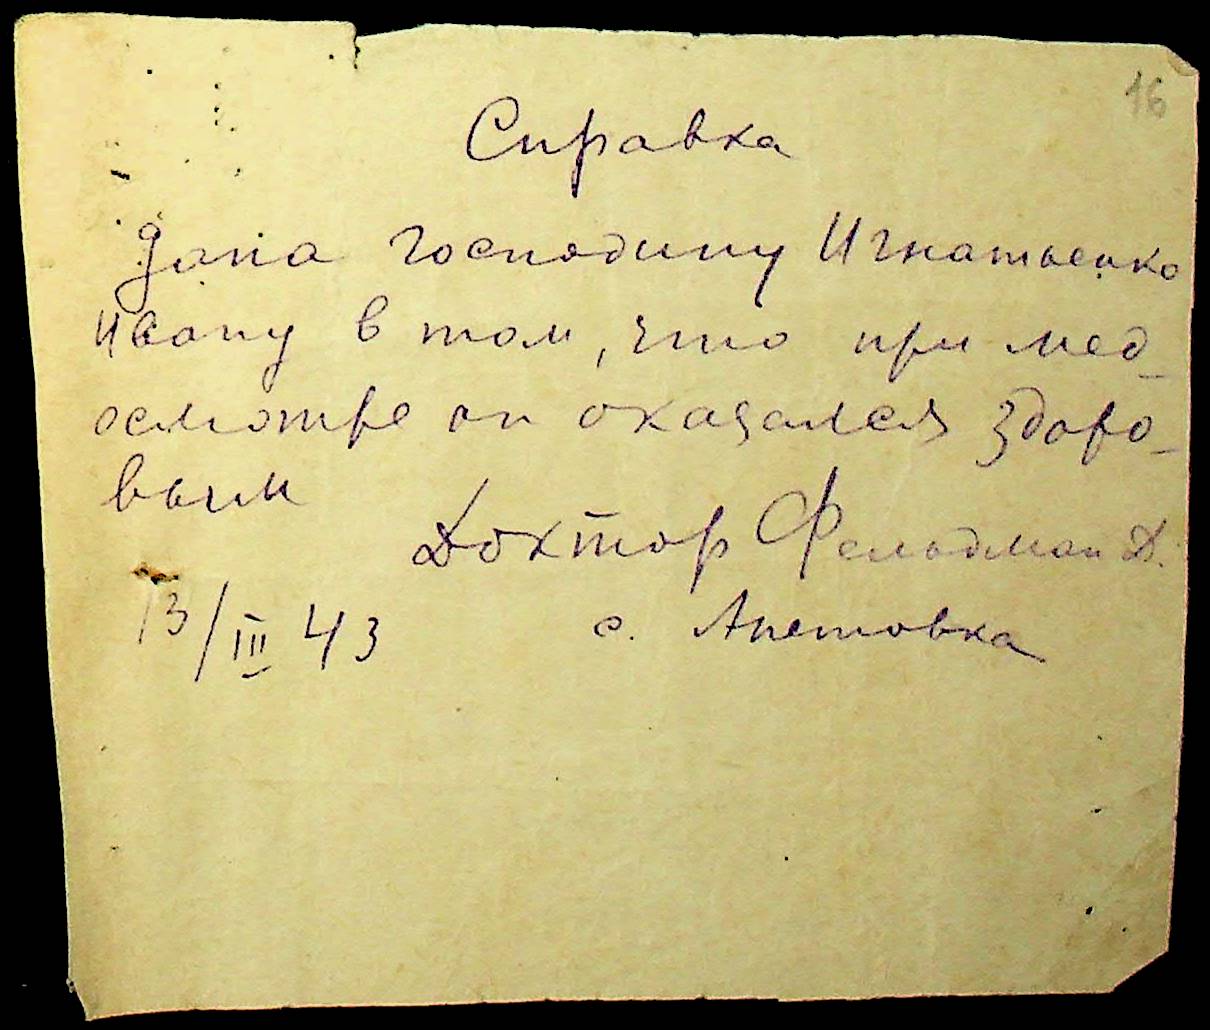 16
Справка
Дана господину Игнатьенко
Ивану в том, что при мед-
осмотре он оказался здоро-
вым
Доктор Фельдман Д.
13/III 43
с. Анетовка